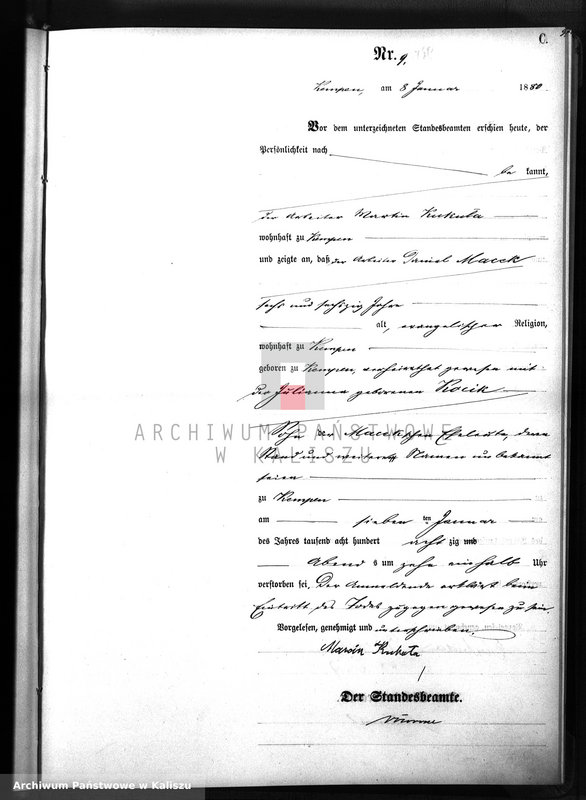 C.
Nr. 9.
Kempen, am 8 Januar 1880
Vor dem unterzeichneten Standesbeamten erschien heute, der
Persönlichkeit nach
be kannt,
der Arbeiter Martin Kukuła
wohnhaft zu Kempen
und zeigte an, daß der Arbeiter Daniel Maeck
sechs und sechzig Jahre
alt, evangelischer Religion,
wohnhaft zu Kempen
geboren zu Kempen, verheirathet gewesen mit
der Julianna geborenen Kocik
Sohn der Maeckschen Eheleute, deren
Stand und weitere Namen unbekannt
seien
ARCHIWUM PAŃSTWOWE
W KALISZU
zu Kempen
am sieben ten Januar
des Jahres tausend acht hundert acht zig und
Abend s um zehn einhalb Uhr
verstorben sei. Der Anmeldende erklärt beim
Eintritt des Todes zugegen gewesen zu sein.
Vorgelesen, genehmigt und unterschrieben.
Marcin Kukuła
Der Standesbeamte.
Archiwum Państwowe w Kaliszu